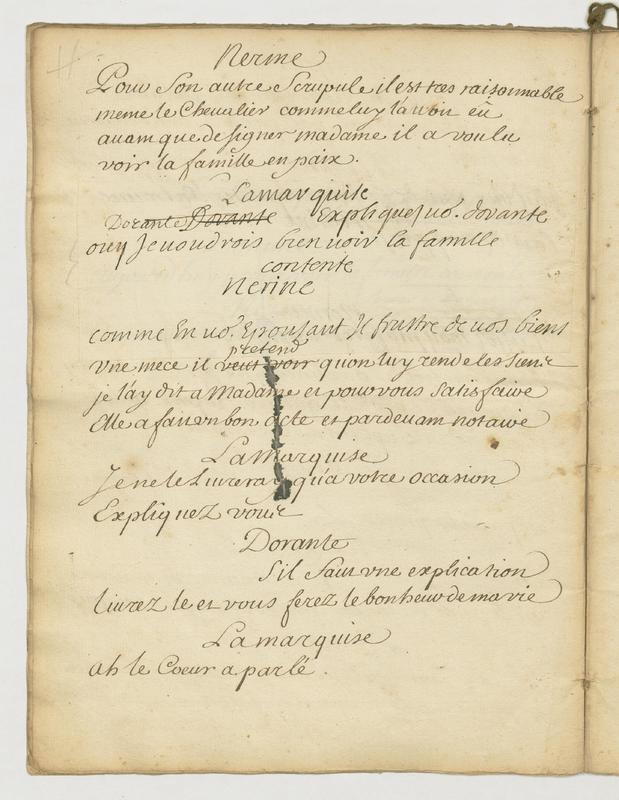 Nerine
Pour Son autre Scrupule il est tres raisonnable
meme le Chevalier comme luy l'a voit eû
auant que de signer madame il a voulu
voir la famille en paix.
Lamarquise
Dorante Dorante Expliquez vo.s dorante
ouy Je voudrois bien voir la famille
contente
Nerine
comme En vo.s Epousant Il frustre de vos biens
pretend
vne niece il veut voir qu'on luy rende les siens
je l'ay dit a Madame et pour vous satisfaire
Elle a fait vn bon acte et pardeuant notaire
LaMarquise
Je ne le Liureray qu'a votre occasion
Expliquez vous
Dorante
S'il faut vne explication
liurez le et vous ferez le bonheur de ma vie
Lamarquise
ah le Coeur a parlé.